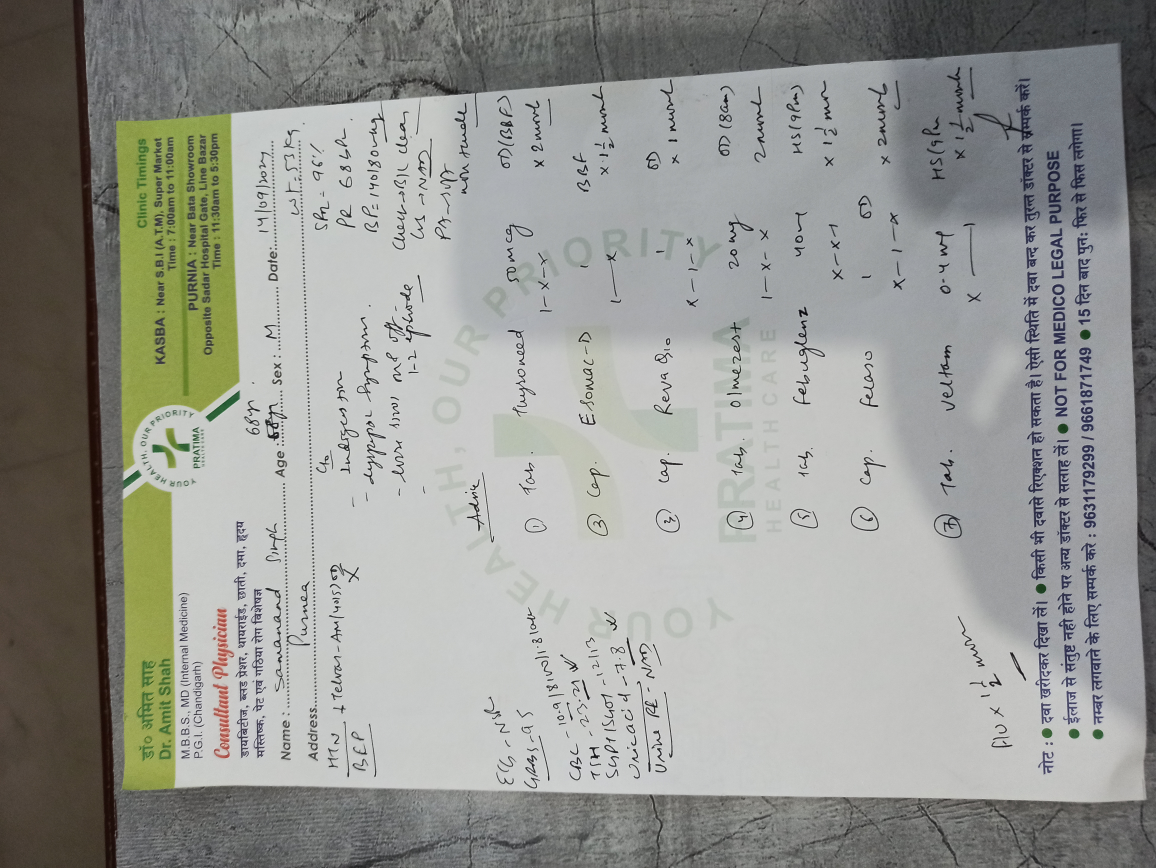 डॉ० अमित साह
Dr. Amit Shah
M.B.B.S., MD (Internal Medicine)
P.G.I. (Chandigarh)
Consultant Physician
डायबिटीज, ब्लड प्रेशर, थायराईड, छाती, दमा, हृदय
मस्तिष्क, पेट एवं गठिया रोग विशेषज्ञ
YOUR HEALTH, OUR PRIORITY
PRATIMA
Clinic Timings
KASBA : Near S.B.I (A.T.M), Super Market
Time : 7:00am to 11:00am
PURNIA : Near Bata Showroom
Opposite Sadar Hospital Gate, Line Bazar
Time : 11:30am to 5:30pm
Name : Samanand Singh Age : 68yr Sex : M Date: 14/09/2024
Address Purnea WT = 53 Kg
HTN + Telvas-AM (40/5) OD
BEP
C/o
- Indigestion
- dyspepsia symptoms.
- loose stool on & off -
1-2 episode
SPO2 = 96%
PR 68 bpm.
BP = 140/80 mmHg
Chest → B/L clear
CVS → NAD
PA → soft
non tender
Advice
ECG - NSR
GRBS - 95
CBC - 10.9/8120/1.81 lakh
TSH - 23.21
SGPT/SGOT - 12/13
Uric acid - 7.8
Urine RE - NAD
① Tab. Thyroneed 50mcg OD (BBF)
1-x-x x 2 month
② Cap. Esomac-D 1 BBF
1 — x x 1½ month
③ Cap. Reva D3 1 OD
x-1-x x 1 month
④ Tab. Olmezest 20mg OD (8am)
1-x-x 2 month
⑤ Tab. Febuglenz 40mg HS (9pm)
x-x-1 x 1½ mon
⑥ Cap. 1 OD
x-1-x x 2 month
⑦ Tab. Veltam 0.4mg HS (9pm
x — 1 x 1½ month
F/U x 1½ mon
YOUR HEALTH, OUR PRIORITY
PRATIMA
HEALTH CARE
नोट : ● दवा खरीदकर दिखा लें। ● किसी भी दवासे रिएक्शन हो सकता है। ऐसी स्थिति में दवा बन्द कर तुरन्त डॉक्टर से सम्पर्क करें।
● ईलाज से संतुष्ट नही होने पर अन्य डॉक्टर से सलाह लें। ● NOT FOR MEDICO LEGAL PURPOSE
● नम्बर लगवाने के लिए सम्पर्क करे : 9631179299 / 9661871749 ● 15 दिन बाद पुन: फिर से फिस लगेगा।